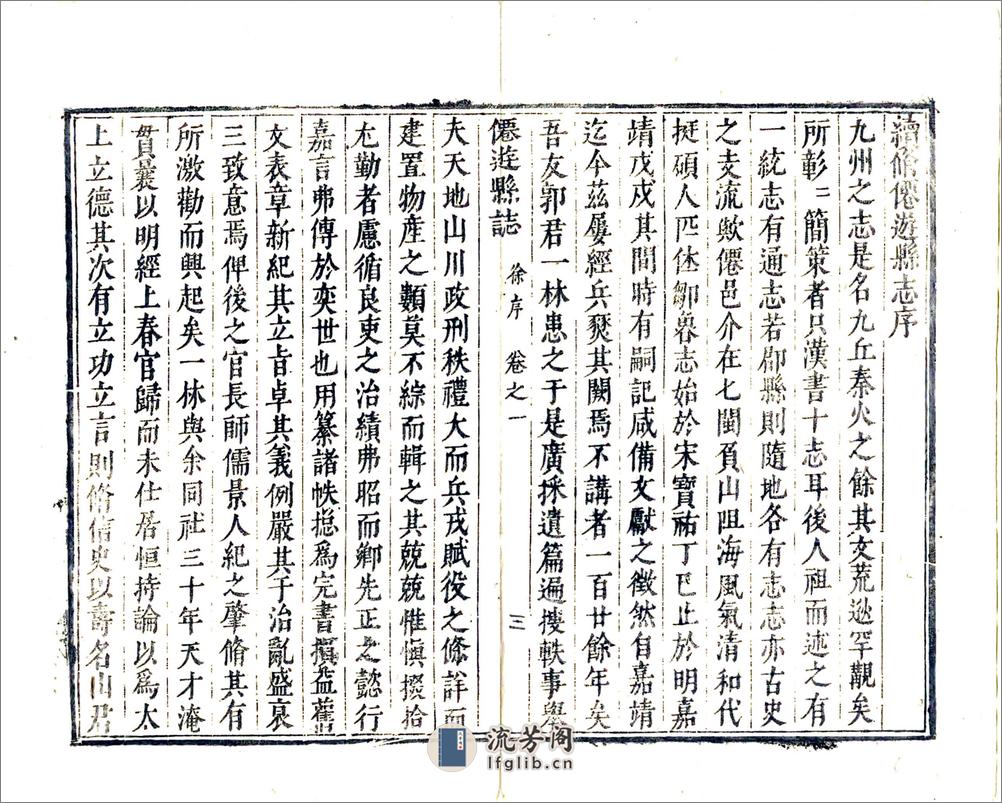 續脩僊遊縣志序
九州之志是名九丘秦火之餘其文荒逖罕觀矣
所彰二簡策者只漢書十志耳後人祖而述之有
一統志有通志若郡縣則隨地各有志志亦古史
之支流歟僊邑介在七閩負山阻海風氣清和代
挺碩人匹休鄒魯志始於宋寶祐丁巳止於明嘉
靖戊戌其間時有嗣記咸備文獻之徵然自嘉靖
迄今茲屢經兵燹其闕焉不講者一百廿餘年矣
吾友郭君一林患之于是廣採遺篇遍搜軼事舉
僊遊縣誌 徐序 卷之一 三
夫天地山川政刑秩禮大而兵戎賦役之條詳而
建置物產之類莫不綜而輯之其兢兢惟慎掇拾
尤勤者慮循良吏之治績弗昭而鄉先正之懿行
嘉言弗傳於奕世也用纂諸帙揔為完書損益舊
文表章新紀其立旨卓其義例嚴其于治亂盛衰
三致意焉俾後之官長師儒景人紀之肇脩其有
所激勸而興起矣一林與余同社三十年天才淹
貫曩以明經上春官歸而未仕居恒持論以為太
上立德其次有立功立言則脩信史以壽名山君
流芳阁
lfglib.cn